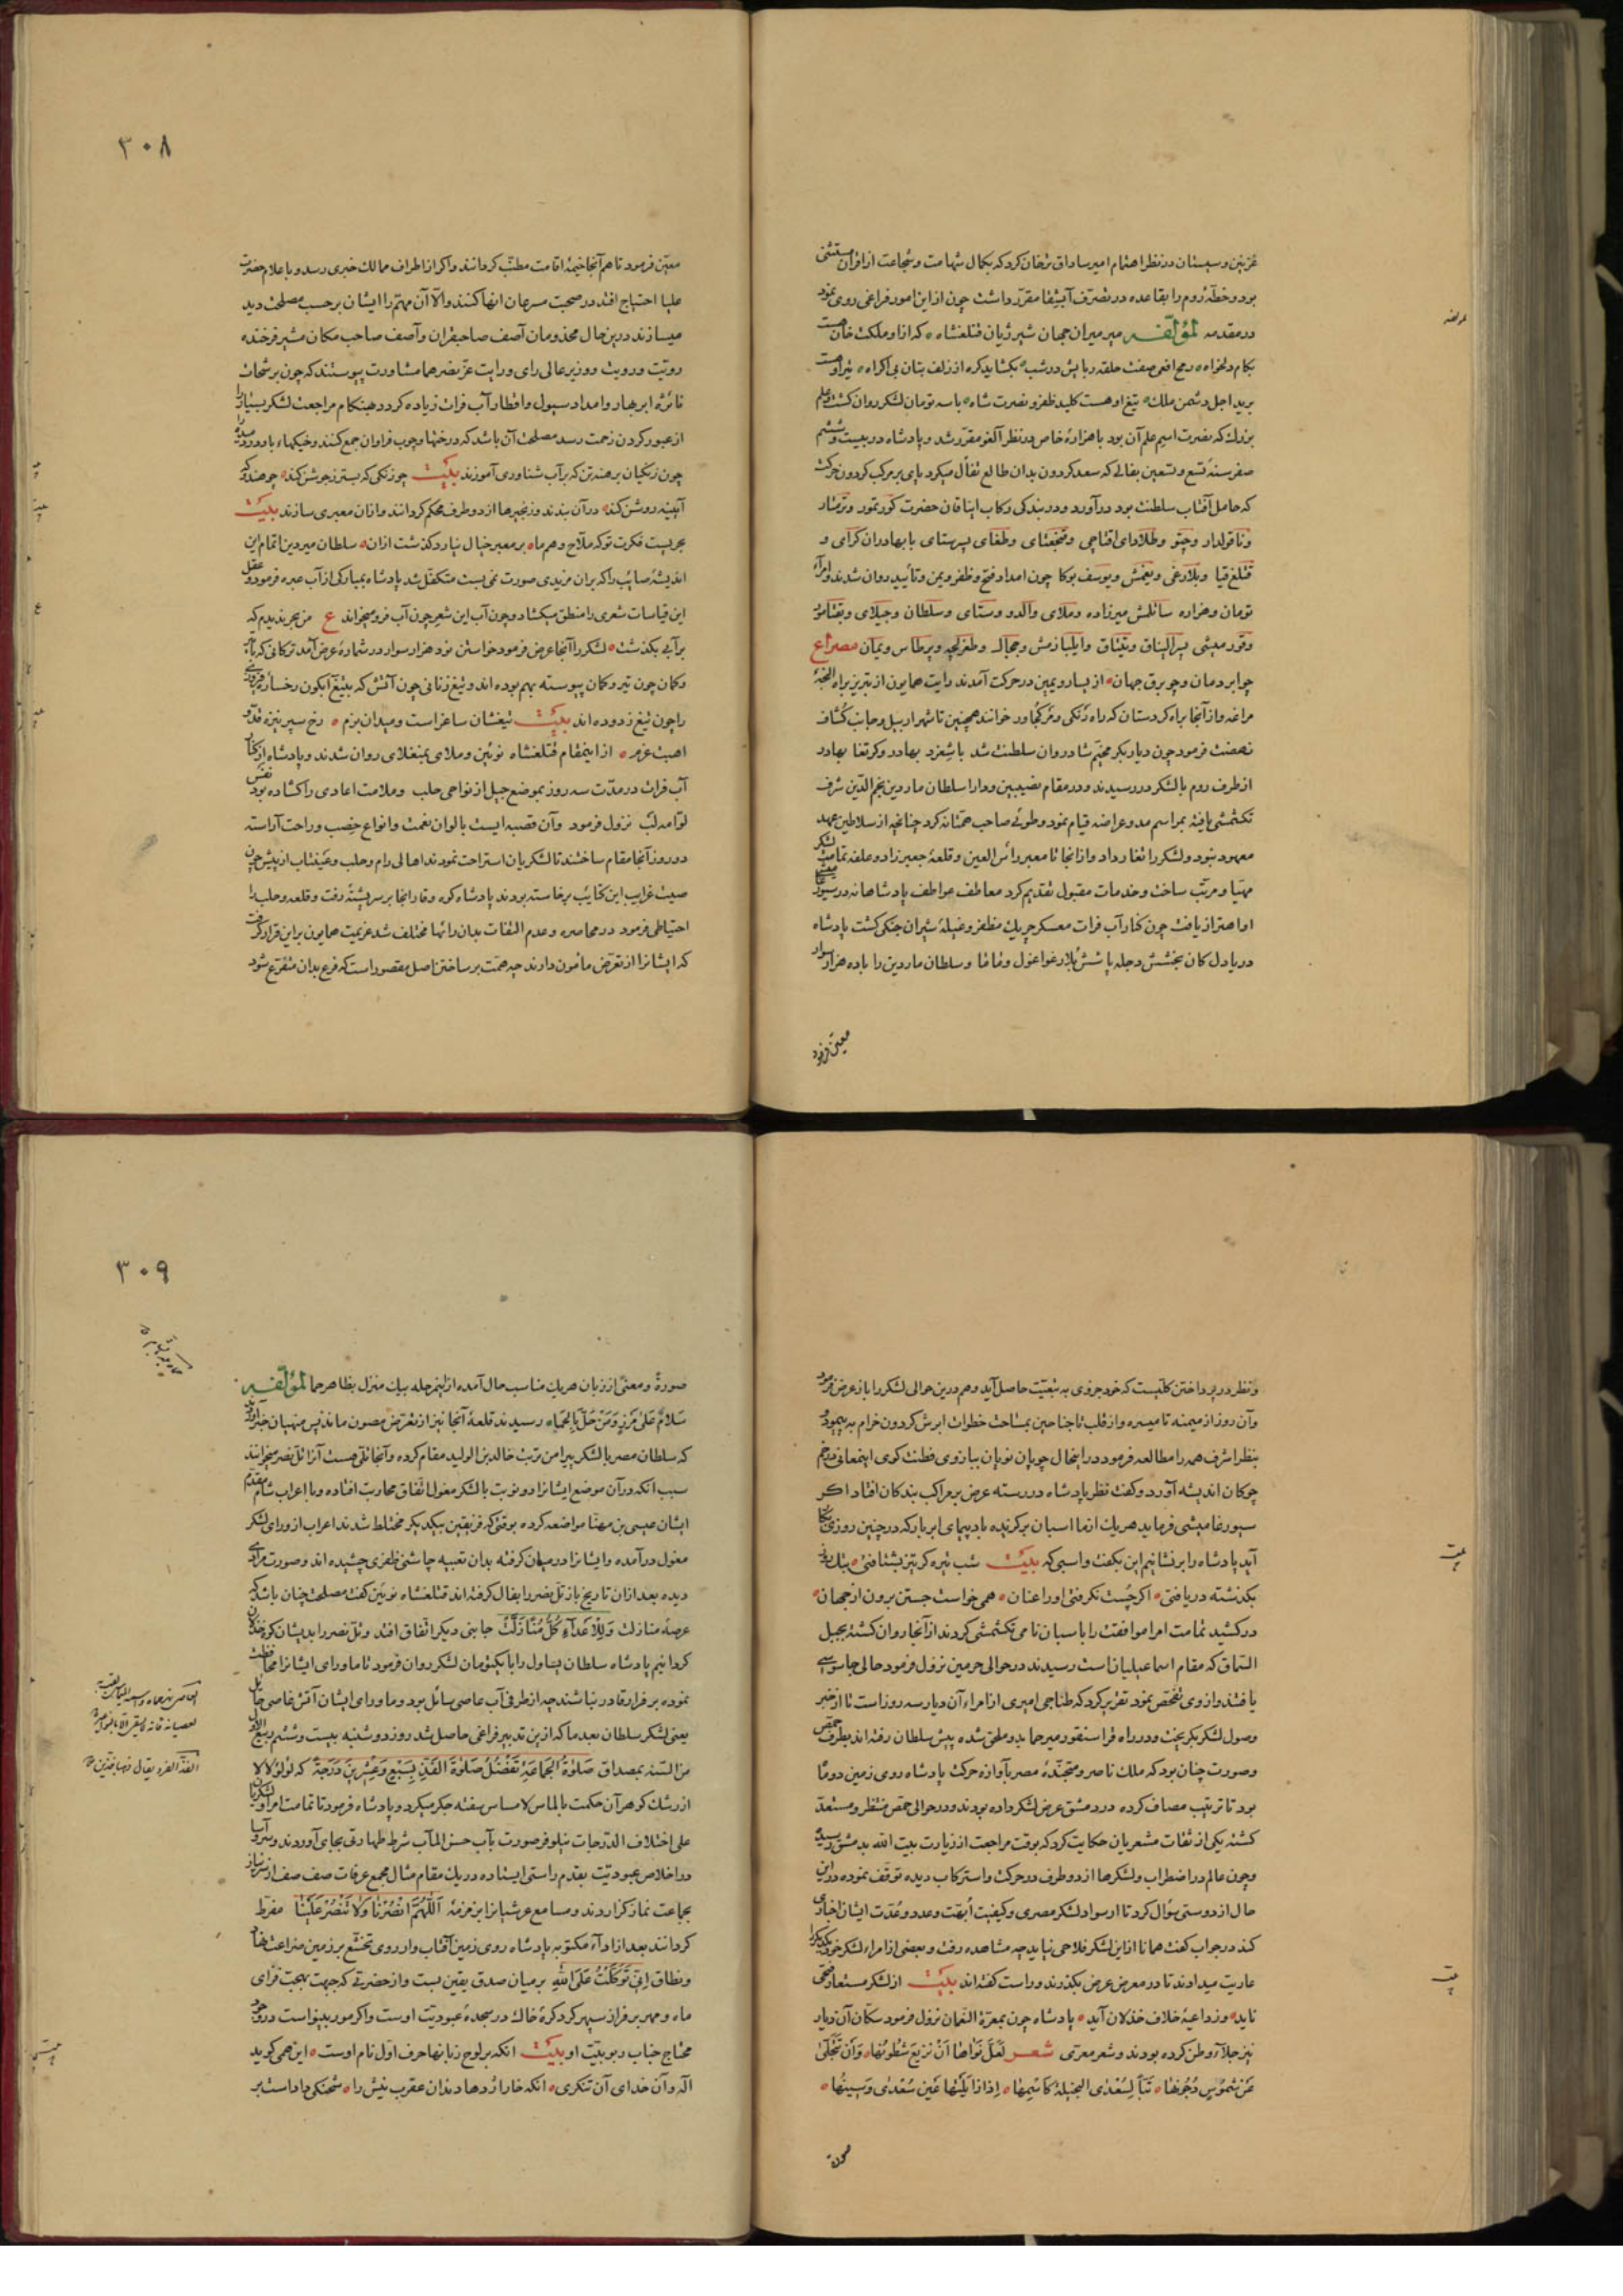 غزنین و سیستان در نظر اهتمام امیر ساداق ترخان کرد که بکمال شهامت و شجاعت از اقران مستثنی
بود و خطهٔ روم را بقاعده در تصرف آبیشقا مقرر داشت چون ازین امور فراغی روی نمود
در مقدمه لمؤلفه میر میران جهان شیر ژیان قتلغشاه که ازو ملکت خان
بکام دلخواه رمح افعی صفت حلقه ربایش در شب بکشاید کره از زلف بتان بی اکراه
برید اجل دشمن ملک تیغ او هست کلید ظفر و نصرت شاه با سه تومان لشکر روان کشت
بزرک که نصرت اسیم علم آن بود با هزارهٔ خاص در نظر آلغو مقرر شد و پادشاه در بیست و ششم
صفر سنهٔ تسع و تسعین بفالی که سعد کردون بدان طالع تفأل میکرد پای بر مرکب کردون حرکت
که حامل آفتاب سلطنت بود درآورد و در بندکی رکاب ایناقان حضرت کور تمور و ترمتار
و ناقولدار و جتو و طلادای اقتاجی و قنجغتای و طغای پسرستای با بهادران کرای و
قتلغ قیا و بلارغی و یغمش و یوسف بوکا چون امداد فتح و ظفر و یمن و تأیید روان شدند و امرآء
تومان و هزاره ساتلمش میرزاده و ملای و الدو و ستای و سلطان و جیلای و بقتامور
مصراع
چو ابر دمان و چو برق جهان از یسار و یمین در حرکت آمدند رایت همایون از تبریز براه
مراغه و از آنجا براه کردستان که راه خوانند همچنین تا شهر اربیل و جانب کشاف
نهضت فرمود چون دیاربکر مخیم شادروان سلطنت شد باشغرد بهادر و کرتغا بهادر
از طرف روم با لشکر در رسیدند و در مقام نصیبین و دارا سلطان ماردین نجم الدین شرف
تکشمشی یافته بمراسم مد و عراضه قیام نمود و طوئی صاحب همتانه کرد چنانچه از سلاطین عهد
معهود نبود و لشکر را تغار داد و از آنجا تا معبر رأس العین و قلعهٔ جعبر زاد و علفهٔ تمامت لشکر
مهیا و مرتب ساخت و خدمات مقبول تقدیم کرد معاطف عواطف پادشاهانه
او اهتزاز یافت چون کنار آب فرات معسکر چریک مظفر و غیلهٔ شیران جنکی کشت پادشاه
دریا دل کان بخشش دجله پاشش بلارغو اغول و نانا و سلطان ماردین را با ده هزار سوار
معین فرمود
۳۰۸
معین فرمود تا هم آنجا خیمهٔ اقامت مطنب کردانند و اکر از اطراف ممالک خبری رسد و باعلام حضرت
علیا احتیاج افتد در صحبت مسرعان انها کنند و الا آن مهم را ایشان برحسب مصلحت دید
میسازند درین حال مخدومان آصف صاحبقران و آصف صاحب مکان مشیر فرخنده
رویت و رویت و وزیر عالی رای و رایت عز نصرهما مشاورت پیوستند که چون برشحات
نائرهٔ ابر بهار و امداد سیول و اقطار آب فرات زیاده کردد هنکام مراجعت لشکر بسیار را
از عبور کردن زحمت رسد مصلحت آن باشد که درختها و چوب فراوان جمع کنند و خیکهاء باد
چون زنکیان برهنه تن که بر آب شناوری آموزند بیت چو زنکی که بستر ز جوشن کند چو هندو که
آیینه روشن کند در آن بندند و زنجیرها از دو طرف محکم کردانند و از آن معبری سازند بیت
بحریست فکرت تو که ملاح وهم ما بر معبر خیال نیارد کذشت از آن سلطان میردین اتمام این
اندیشهٔ صائب را که بر آن مزیدی صورت نمی بست متکفل شد پادشاه بمبارکی از آب عبره فرمود و عقل
این قیاسات شعری را منطق میکشاد و چون آب این شعر چون آب فرو میخواند ع من بحر ندیدم که
برآبی بکذشت لشکر را آنجا عرض فرمود خواستن نود هزار سوار در شمارهٔ عرض آمد ترکانی که با
و کمان چون تیر و کمان پیوسته بهم بوده اند و تیغ زنانی چون آتش که بتیغ آبکون رخسارهٔ
را چون تیغ زدوده اند بیت تیغشان ساغر است و میدان بزم رخ سپر نیزه قد و
اهبت عزم از اینمقام قتلغشاه نوئین و ملای بمنغلای روان شدند و پادشاه از کنار
آب فرات در مدت سه روز بموضع جبل از نواحی حلب و ملامت اعادی را کشاده بود نفس
لوامه لب نزول فرمود و آن قصبه ایست بالوان نعمت و انواع خصب و راحت آراسته
دو روز آنجا مقام ساختند تا لشکریان استراحت نمودند اهالی رام و حلب و عینتاب از پیش چون
صیت غرایب این کتایب برخاسته بودند پادشاه کوه وقار آنجا بر سر پشته رفت و قلعه و حلب را
احتیاطی فرمود در محاصره و عدم التفات بدان رائها مختلف شد عزیمت همایون براین قرار کرفت
که ایشانرا از تعرض مأمون دارند چه همت بر ساختن اصل مقصور است که فرع بدان متفرع شود
و نظر در پرداختن کلیست که خود جزوی به تبعیت حاصل آید و هم درین حوالی لشکر را باز عرض فرمود
و آن روز از میمنه تا میسره و از قلب تا جناحین بمساحت خطوات ابرش کردون خرام به پیمود
بنظر اشرف همه را مطالعه فرمود در اینحال چوپان نویان ببازوی فطنت کوی اینمعانی در خم
چوکان اندیشه آورد و کفت نظر پادشاه در رسته عرض بر مراکب بندکان افتاد اکر
سیورغامیشی فرماید هر یک ازما اسبان برکزیده بادپیمای ابر بار که در چنین روزی بکار
آید پادشاه را برنشانیم این بکفت و اسبی که بیت شب تیره کر تیز بشتافتی
بکذشته دریافتی اکر چست نکرفتی او را عنان همی خواست جستن برون از جهان
درکشید تمامت امرا موافقت را با سبان نامی تکشمشی کردند از آنجا روان کشته بجبل
السماق که مقام اسماعیلیان است رسیدند در حوالی حرمین نزول فرمود حالی جاسوسی
یافتند و از وی تفحص نمود تقریر کرد که طناجی امیری از امراء آن دیار سه روز است تا از خبر
وصول لشکر بکریخت و در راه قراسنقور میر حما بدو ملحق شده پیش سلطان رفته اند بطرف حمص
و صورت چنان بود که ملک ناصر و متجندهٔ مصر بآوازه حرکت پادشاه روی زمین دو ماه
بود تا ترتیب مصاف کرده در دمشق عرض لشکر داده بودند و در حوالی حمص منتظر و مستعد
کشته یکی از ثقات مشعریان حکایت کرد که بوقت مراجعت از زیارت بیت الله بدمشق رسید
و چون عالم در اضطراب و لشکرها از دو طرف در حرکت و استرکاب دیده توقف نموده در این
حال از دوستی سؤال کرد تا از سواد لشکر مصری و کیفیت ابهت و عدد و عدت ایشان اخباری
کند در جواب کفت همانا ازاین لشکر فلاحی نیاید چه مشاهده رفت و بعضی از امراء لشکر خود
عاریت میدادند تا در معرض عرض بکذرند و راست کفته اند بیت از لشکر مستعار فتحی
ناید وز داعیهٔ خلاف خذلان آید پادشاه چون بمعرة النعمان نزول فرمود سکان آن دیار
نیز جلاء وطن کرده بودند و شعر معری شعر لعل نواها ان تریع شطونها و ان تجلی
عن شموس دجونها اذا زایلتها عین سعدی و سینها
صورة
۳۰۹
صورة و معنی از زبان هر یک مناسب حال آمده از اینمرحله بیک منزل بظاهر حما لمؤلفه
سلام علی مرز و من حل بالحماه رسیدند قلعهٔ آنجا نیز از تعرض مصون ماند پس منهیان خبر
که سلطان مصر با لشکر پیرامن تربت خالد بن الولید مقام کرده و آنجا تلی هست آنرا تل نصر میخوانند
سبب آنکه در آن موضع ایشانرا دو نوبت با لشکر مغول اتفاق محاربت افتاده و با اعراب شام مقدم
ایشان عیسی بن مهنا مواضعه کرده بوقتی که فریقین بیکدیکر مختلط شدند اعراب از ورای لشکر
مغول درآمده و ایشانرا در میان کرفته بدان تعبیه چاشنی ظفری چشیده اند و صورت مرادی
دیده بعد از آن تاریخ باز تل نصر را بفال کرفته اند قتلغشاه نویین کفت مصلحت چنان باشد که
عرصهٔ منازلت و للاعداء کل منازلة جانبی دیکر اتفاق افتد و تل نصر را بدیشان
کردانیم پادشاه سلطان یساول را با یکتومان لشکر روان فرمود تا ماورای ایشانرا محافظت
نموده بر فرار قادر نباشند چه از طرفی آب عاصی سائل بود و ماورای ایشان آتش غاصی حایل
یعنی لشکر سلطان بعد ما که ازین تدبیر فراغی حاصل شد روز دوشنبه بیست و ششم ربیع الاول
من السنه بمصداق صلوة الجماعة تفضل صلوة الفذ بسبع و عشرین درجة که لؤلؤ لالا
از رشک کوهر آن حکمت بالماس لامساس سفته جکر میکرد و پادشاه فرمود تا تمامت امرا و لشکریان
علی اختلاف الدرجات نیلوفر صورت بآب حسن المآب شرط طهارتی بجای آوردند و سرو آسا
در اخلاص عبودیت بقدم راستی ایستاده در یک مقام مثال مجمع عرفات صف صف از سر نیاز
بجماعت نماز کزاردند و مسامع عرشیانرا بزمزمهٔ اللهم انصرنا و لا تنصر علینا مقرط
کردانند بعد از اداء مکتوبه پادشاه روی زمین آفتاب وار روی تخشع بر زمین ضراعت نهاد
و نطاق انی توکلت علی الله بر میان صدق یقین بست و از حضرتی که جبهت بهجت فزای
ماه و مهر بر فراز سپهر کرد کرهٔ خاک در سجدهٔ عبودیت اوست و اکر مور بینواست در وجود
محتاج جناب ربوبیت او بیت آنکه بر لوح زبانها حرف اول نام اوست این همی کوید
اله و آن خدای آن تنکری آنکه خار از دها دندان عقرب نیش را شحنکی داداست بر